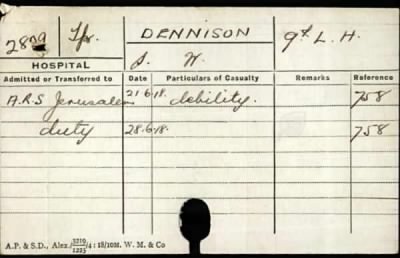 2809 Tpr. DENNISON 9th L. H.
HOSPITAL J. W.
Admitted or Transferred to Date Particulars of Casualty Remarks Reference
A.R.S Jerusalem 21.6.18. debility. 758
duty 28.6.18. 758
A.P. & S.D., Alex./3219/1223/4: 18/10M. W. M. & Co